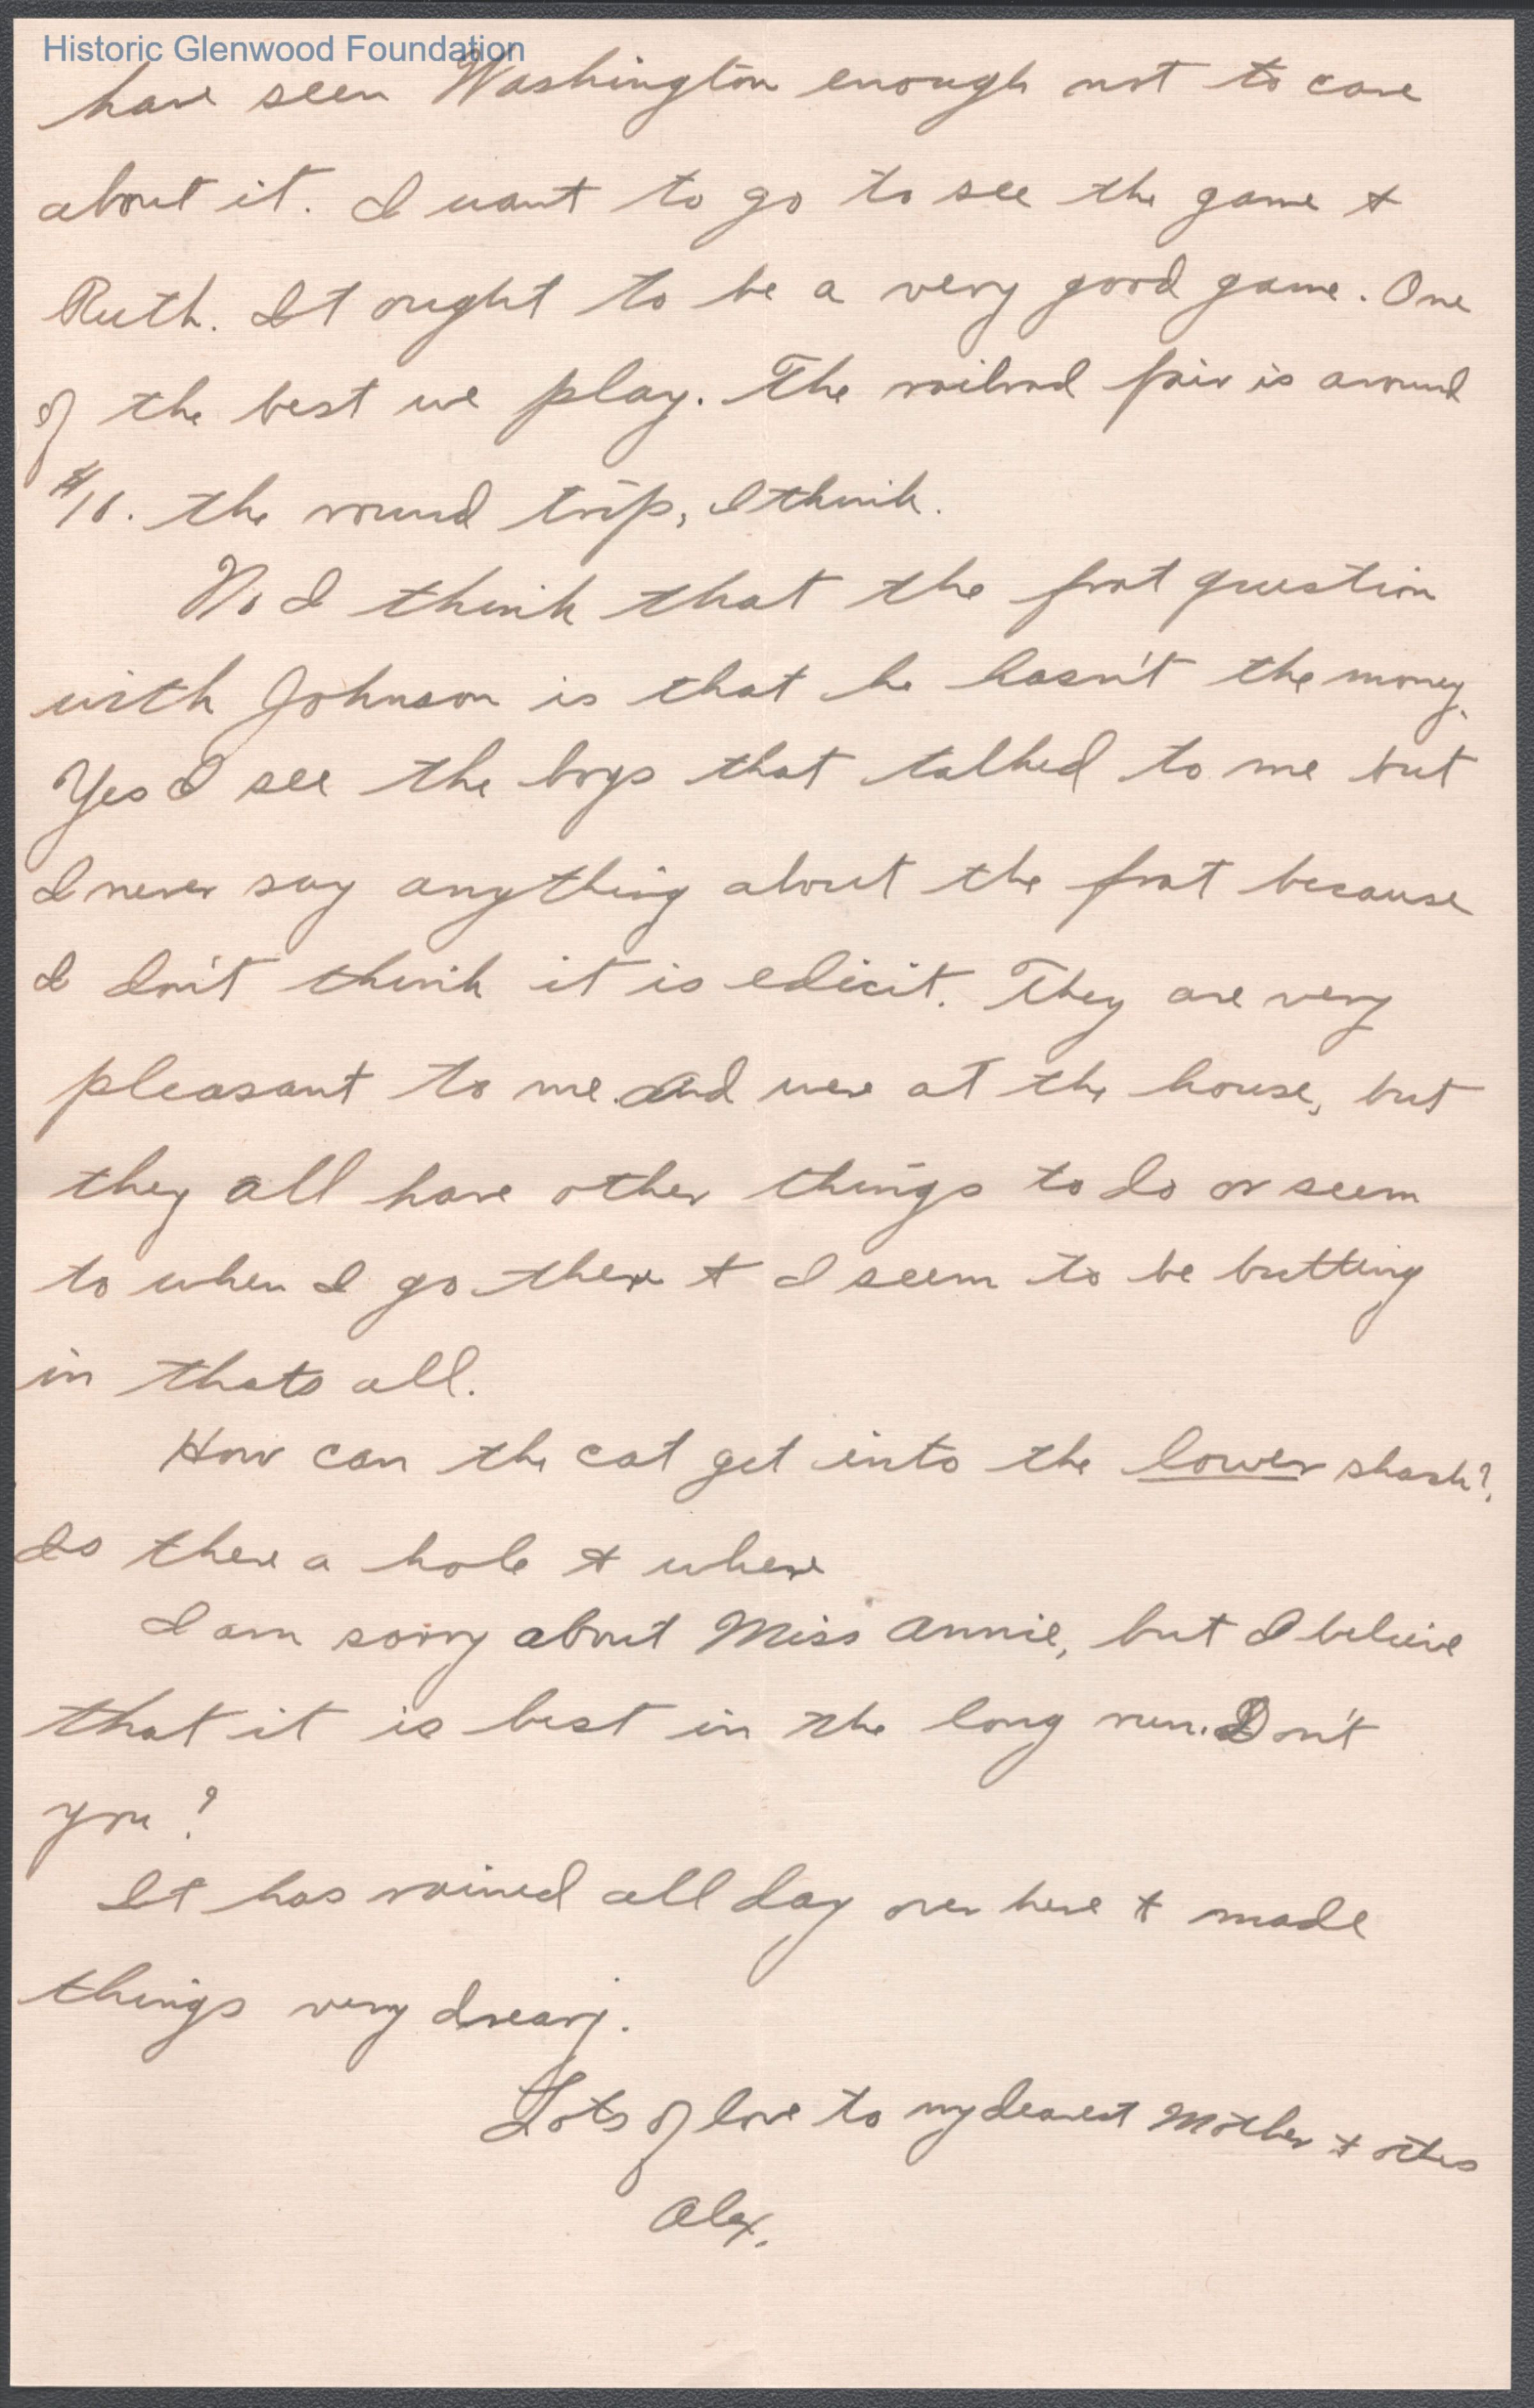 Historic Glenwood Foundation
have seen Washington enough not to care
about it. I want to go to see the game &
Ruth. It ought to be a very good game. One
of the best we play. The railrod fair is around
the round trip, I think.
No I think that the frat question
with Johnson is that he hasn't the money.
Yes I see the boys that talked to me but
I never say anything about the frat because
I don't think it is edicit. They are very
pleasant to me. and were at the house, but
they all have other things to do or seem
to when I go there & I seem to be butting
in thats all.
How can the cat get into the lower shash?
Is there a hole & where
I am sorry about Miss Annie, but I believe
that it is best in the long run. Don't
you?
It has rained all day over here & made
things very dreary.
Lots of love to my dearest Mother &
Alex.